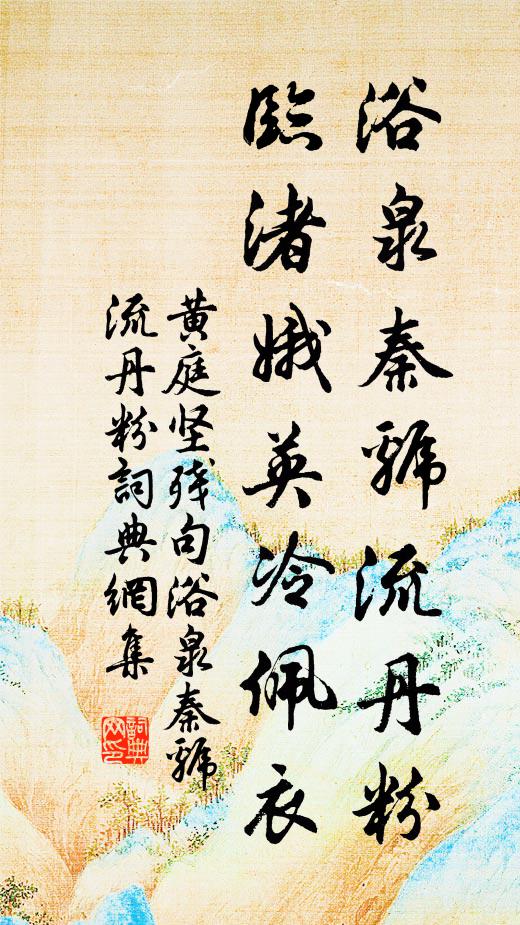 浴泉秦虢流丹粉
臨渚娥英冷佩衣
黄庭坚残句浴泉秦虢
流丹粉詞典網集